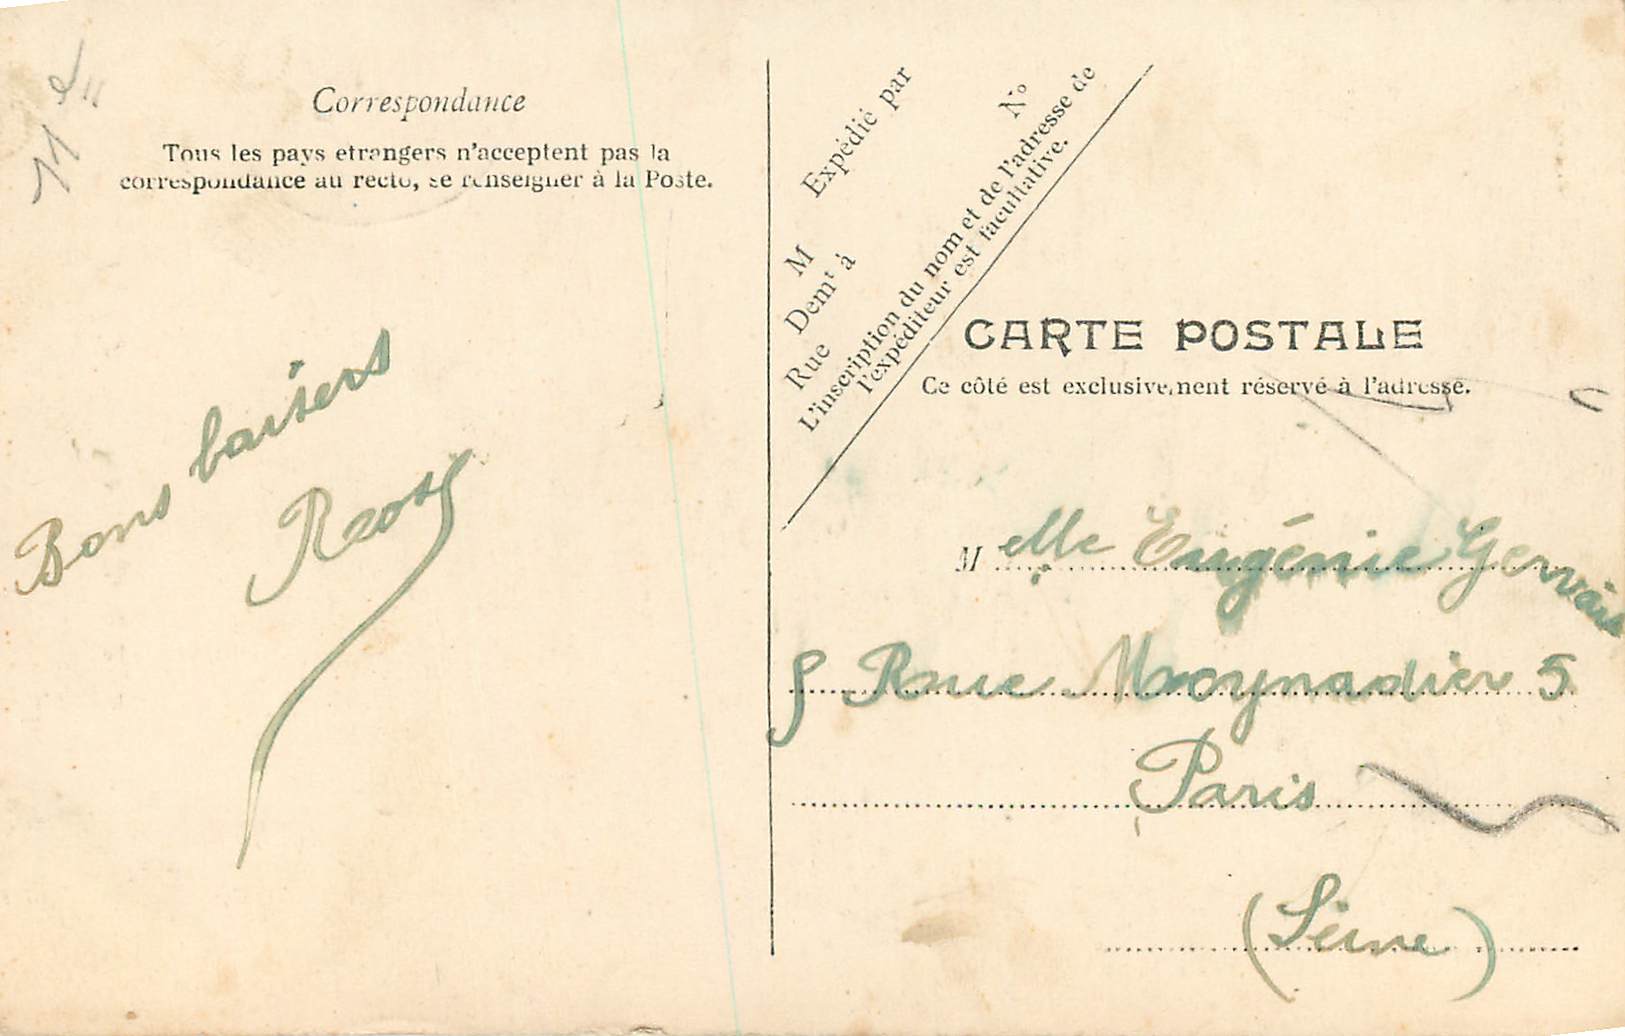 11e
Correspondance
Tous les pays etrangers n'acceptent pas la
correspondance au recto, se renseigner à la Poste.
Bons baisers
Expédié par
M
Demt à
Rue
No
L'inscription du nom et de l'adresse de
l'expéditeur est facultative.
CARTE POSTALE
Ce côté est exclusivement réservé à l'adresse.
Melle Eugénie Gervais
5 Rue Moynadier 5
Paris
(Seine)